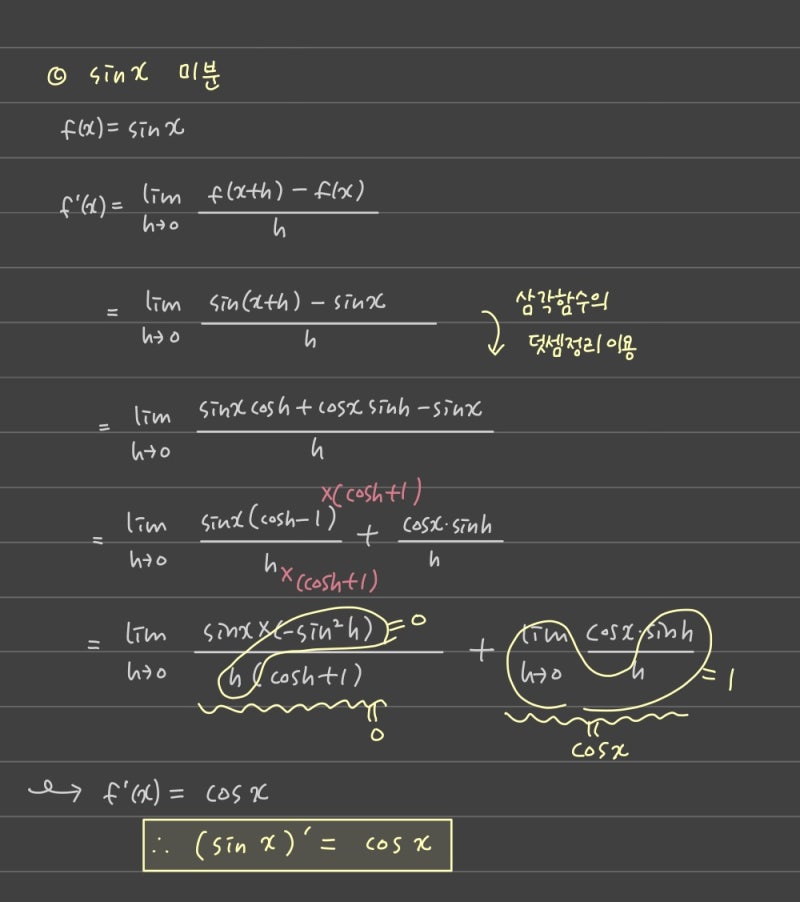 ◎ sinx 미분
f(x)= sinx
f'(x)= lim h→0 f(x+h) - f(x) / h
= lim h→0 sin(x+h) - sinx / h
삼각함수의
덧셈정리 이용
= lim h→0 sinx cosh + cosx sinh - sinx / h
×(cosh+1)
= lim h→0 sinx(cosh-1) / h + cosx·sinh / h
×(cosh+1)
= lim h→0 sinx×(-sin²h) / h(cosh+1) + lim h→0 cosx·sinh / h
=0
=1
=
0
=
cosx
↪ f'(x) = cosx
∴ (sin x)' = cos x